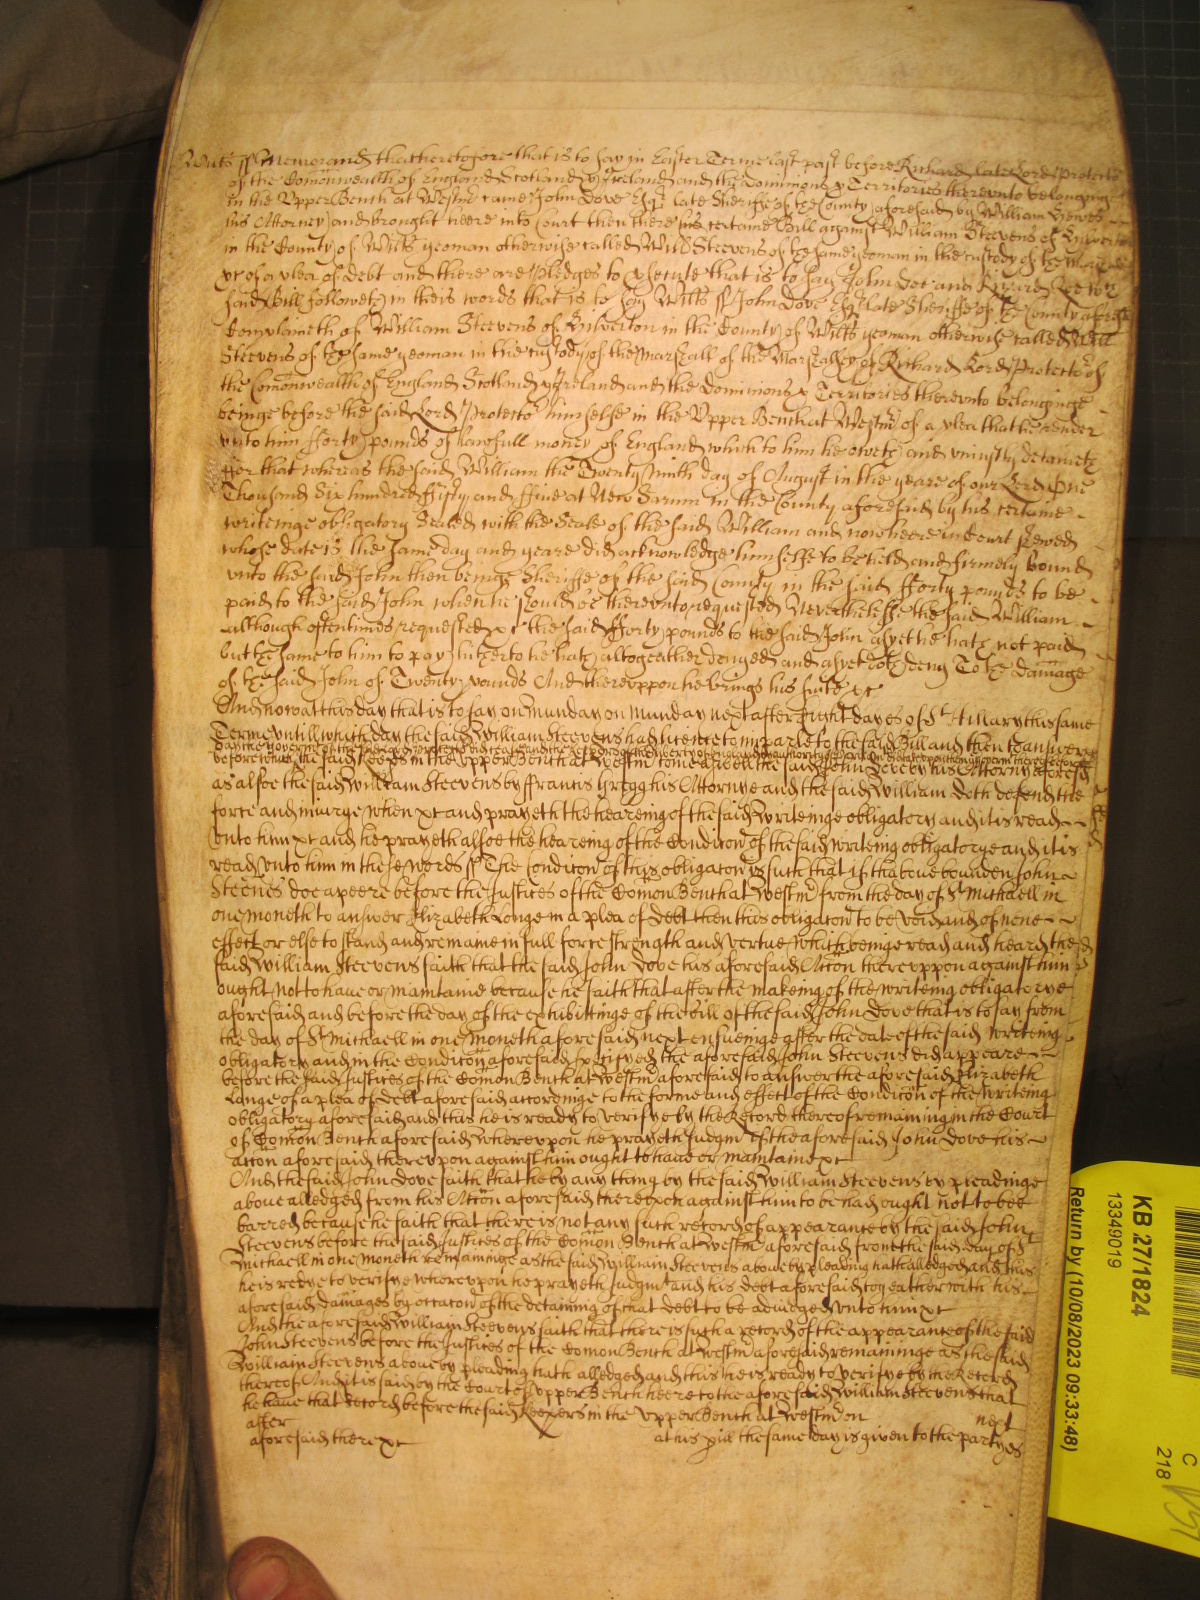 Wilts ss Memorand that heretofore that is to say in Easter Terme last past before Richard late Lord Protector
of the Comonwealth of England Scotland & Ireland and the Dominions & Territories thereunto belonging
in the Upper Bench at Westmr came John Dove Esqr late Sheriffe of the County aforesaid by William
his Attorney and brought heere into Court then there his certaine Bill against William Steevens of
in the County of Wilts yeoman otherwise called Will Steevens of the same yeoman in the custody of the Marshall
&c of a plea of debt and there are pledges to prosecute that is to say John Doe and Richard Roe wch
said Bill followeth in theis words that is to say Wilts ss John Dove Esqr late Sheriffe of the County aforesd
Complaineth of William Steevens of in the County of Wilts yeoman otherwise called Will
Steevens of the same yeoman in the custody of the Marshall of the Marshalsey of Richard Lord Protector of
the Comonwealth of England Scotland & Ireland and the Dominions & Territories thereunto belonginge
beinge before the said Lord Protector himselfe in the Upper Bench at Westmr of a plea that he render
unto him fforty pounds of lawfull money of England which to him he oweth and uniustly detaineth
ffor that whereas the said William the Twenty Ninth day of August in the yeare of our Lord One
Thousand Six hundred ffifty and ffive at New Sarum in the County aforesaid by his certaine
writeinge obligatory Sealed with the Seale of the said William and now heere in Court shewed
whose date is the same day and yeare did acknowledge himselfe to be held and firmely bound
unto the said John then beinge Sheriffe of the said County in the said fforty pounds to be
paid to the said John when he should be thereunto requested Neverthelesse the said William
although oftentimes requested &c the said fforty pounds to the said John as yet he hath not paid
but the same to him to pay hitherto he hath altogeather denyed and as yet doth deny To the damage
of the said John of Twenty pounds And thereuppon he brings his suite &c
And now at this day that is to say on Munday on Munday next after Eight dayes of St Hillary this same
Terme untill which day the said William Steevens had licence to imparle to the said Bill and then to answere
before whome the said Keepers in the Upper Bench at Westmr come aswell the said John Dove by his Attorny aforesd
as alsoe the said William Steevens by ffrancis Gregg his Attornye and the said William doth defend the
force and iniurye when &c and prayeth the heareing of the said Writeinge obligatory and it is read
unto him &c and he prayeth alsoe the heareing of the Condicon of the said writeing obligatorye and it is
read unto him in these words ss The Condicon of this obligacon is such that if thabove bounden John
Steenes doe apeere before the Justices of the Comon Bench at Westmr from the day of St Michaell in
one moneth to answer Elizabeth Longe in a plea of Debt then this obligacon to be void and of none
effect or else to stand and remaine in full force strength and vertue which beinge read and heard the
said William Steevens saith that the said John Dove his aforesaid Accon thereuppon against him
ought not to have or maintaine because he saith that after the makeing of the writeing obligatorye
aforesaid and before the day of the exhibittinge of the bill of the said John Dove that is to say from
the day of St Michaell in one Moneth aforesaid next ensueinge after the date of the said Writeing
obligatory and in the Condicon aforesaid specifyed the aforesaid John Steevens did appeare
before the said Justices of the Comon Bench at Westmr aforesaid to answer the aforesaid Elizabeth
Longe of a plea of debt aforesaid accordinge to the forme and effect of the Condicon of the writeing
obligatory aforesaid and this he is ready to verifye by the Record thereof remaining in the Court
of Comon Bench aforesaid whereupon he prayeth Judgmt if the aforesaid John Dove his
accon aforesaid thereupon against him ought to have or maintaine &c
And the said John Dove saith that he by any thing by the said William Steevens by pleadinge
above alledged from his Accon aforesaid thereupon against him to be had ought not to bee
barred because he saith that there is not any such record of appearance by the said John
Steevens before the said Justices of the Comon Bench at Westmr aforesaid from the said day of St
Michaell in one Moneth remaininge as the said William Steevens above by pleading hath alledged and this
he is redye to verifye whereupon he prayeth Judgmt and his debt aforesaid togeather with his
aforesaid damages by occacon of the detaining of that debt to be adiudged unto him &c
And the aforesaid William Steevens saith that there is such a record of the appearance of the said
John Steevens before the Justices of the Comon Bench at Westmr aforesaid remaininge as the said
William Steevens above by pleading hath alledged and this he is ready to verifye by the Record
thereof And it is said by the Court of upper Bench heere to the aforesaid William Steevens that
he have that Record before the said Keepers in the Upper Bench at Westmr on next
after at his perill the same day is given to the partyes
aforesaid there &c
KB 27/1824
13349019
Return by (10/08/2023 09:33:48)
C
218